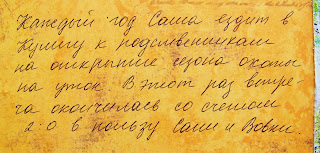 Каждый год Саша ездит в
Кулигу к родственникам
на открытие сезона охоты
на уток В этот раз встре-
ча окончилась со счетом
2-0 в пользу Саши и Вовки.